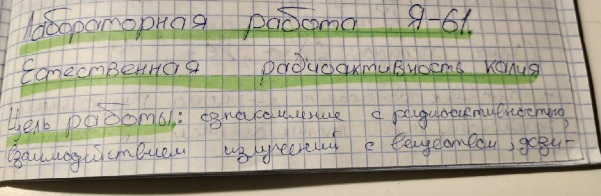 Лабораторная работа Я-61.
Естественная радиоактивность калия
Цель работы: ознакомление с радиоактивностью,
взаимодействием излучений с веществом, дози-